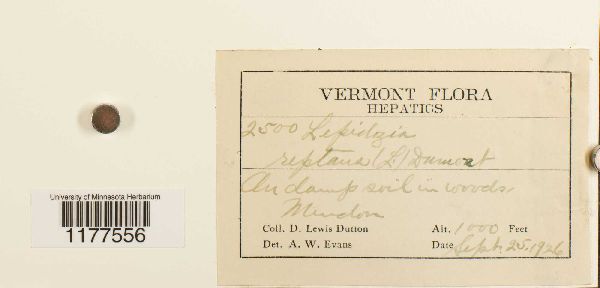 University of Minnesota Herbarium
1177556
VERMONT FLORA
HEPATICS
2500 Lepidozia
reptans (L.) Dumort
On damp soil in woods
Mendon
Coll. D. Lewis Dutton Alt. 1000 Feet
Det. A. W. Evans Date Sept. 25, 1926